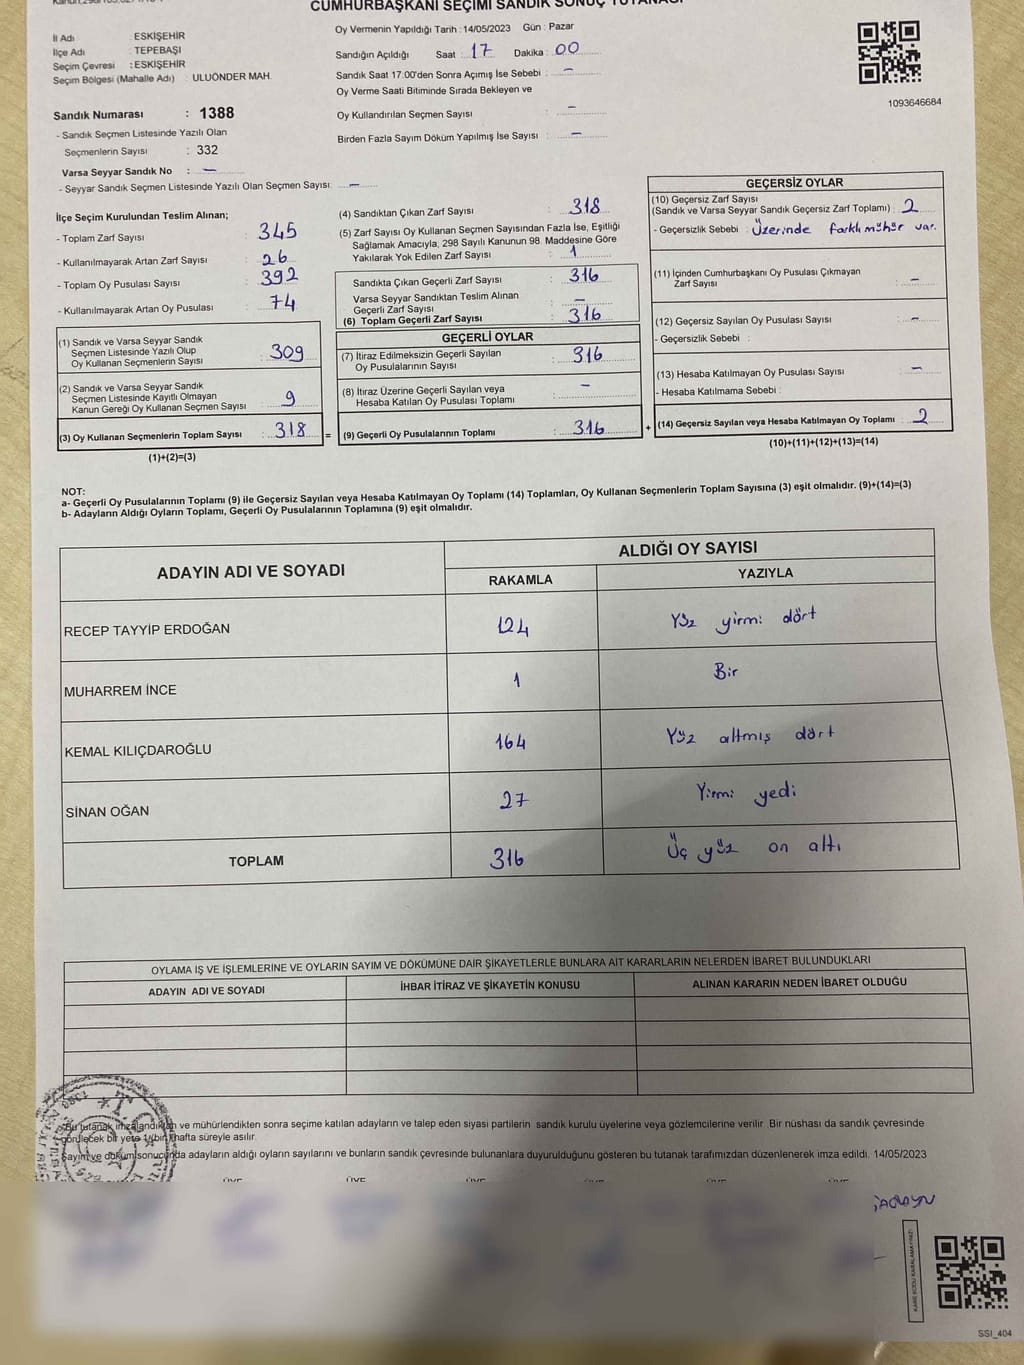 CUMHURBAŞKANI SEÇİMİ SANDIK SONUÇ TUTANAĞI
İl Adı : ESKİŞEHİR
İlçe Adı : TEPEBAŞI
Seçim Çevresi : ESKİŞEHİR
Seçim Bölgesi (Mahalle Adı) : ULUÖNDER MAH.
Sandık Numarası : 1388
- Sandık Seçmen Listesinde Yazılı Olan
Seçmenlerin Sayısı : 332
Varsa Seyyar Sandık No : -
- Seyyar Sandık Seçmen Listesinde Yazılı Olan Seçmen Sayısı: -
Oy Vermenin Yapıldığı Tarih : 14/05/2023 Gün : Pazar
Sandığın Açıldığı Saat : 17 Dakika : 00
Sandık Saat 17:00'den Sonra Açımış İse Sebebi : -
Oy Verme Saati Bitiminde Sırada Bekleyen ve
Oy Kullandırılan Seçmen Sayısı : -
Birden Fazla Sayım Döküm Yapılmış İse Sayısı : -
1093646684
İlçe Seçim Kurulundan Teslim Alınan;
- Toplam Zarf Sayısı : 345
- Kullanılmayarak Artan Zarf Sayısı : 26
- Toplam Oy Pusulası Sayısı : 392
- Kullanılmayarak Artan Oy Pusulası : 74
(1) Sandık ve Varsa Seyyar Sandık
Seçmen Listesinde Yazılı Olup
Oy Kullanan Seçmenlerin Sayısı : 309
(2) Sandık ve Varsa Seyyar Sandık
Seçmen Listesinde Kayıtlı Olmayan
Kanun Gereği Oy Kullanan Seçmen Sayısı : 9
(3) Oy Kullanan Seçmenlerin Toplam Sayısı : 318 =
(1)+(2)=(3)
(4) Sandıktan Çıkan Zarf Sayısı : 318
(5) Zarf Sayısı Oy Kullanan Seçmen Sayısından Fazla İse, Eşitliği
Sağlamak Amacıyla, 298 Sayılı Kanunun 98. Maddesine Göre
Yakılarak Yok Edilen Zarf Sayısı : 1
Sandıkta Çıkan Geçerli Zarf Sayısı : 316
Varsa Seyyar Sandıktan Teslim Alınan
Geçerli Zarf Sayısı : -
(6) Toplam Geçerli Zarf Sayısı : 316
GEÇERLİ OYLAR
(7) İtiraz Edilmeksizin Geçerli Sayılan
Oy Pusulalarının Sayısı : 316
(8) İtiraz Üzerine Geçerli Sayılan veya
Hesaba Katılan Oy Pusulası Toplamı : -
(9) Geçerli Oy Pusulalarının Toplamı : 316 +
GEÇERSİZ OYLAR
(10) Geçersiz Zarf Sayısı
(Sandık ve Varsa Seyyar Sandık Geçersiz Zarf Toplamı) : 2
- Geçersizlik Sebebi : Üzerinde farklı mühür var.
(11) İçinden Cumhurbaşkanı Oy Pusulası Çıkmayan
Zarf Sayısı : -
(12) Geçersiz Sayılan Oy Pusulası Sayısı : -
- Geçersizlik Sebebi :
(13) Hesaba Katılmayan Oy Pusulası Sayısı : -
- Hesaba Katılmama Sebebi :
(14) Geçersiz Sayılan veya Hesaba Katılmayan Oy Toplamı : 2
(10)+(11)+(12)+(13)=(14)
NOT:
a- Geçerli Oy Pusulalarının Toplamı (9) ile Geçersiz Sayılan veya Hesaba Katılmayan Oy Toplamı (14) Toplamları, Oy Kullanan Seçmenlerin Toplam Sayısına (3) eşit olmalıdır. (9)+(14)=(3)
b- Adayların Aldığı Oyların Toplamı, Geçerli Oy Pusulalarının Toplamına (9) eşit olmalıdır.
ADAYIN ADI VE SOYADI ALDIĞI OY SAYISI
RAKAMLA YAZIYLA
RECEP TAYYİP ERDOĞAN 124 Yüz yirmi dört
MUHARREM İNCE 1 Bir
KEMAL KILIÇDAROĞLU 164 Yüz altmış dört
SİNAN OĞAN 27 Yirmi yedi
TOPLAM 316 Üç yüz on altı
OYLAMA İŞ VE İŞLEMLERİNE VE OYLARIN SAYIM VE DÖKÜMÜNE DAİR ŞİKAYETLERLE BUNLARA AİT KARARLARIN NELERDEN İBARET BULUNDUKLARI
ADAYIN ADI VE SOYADI İHBAR İTİRAZ VE ŞİKAYETİN KONUSU ALINAN KARARIN NEDEN İBARET OLDUĞU
Bu tutanak imzalandıktan ve mühürlendikten sonra seçime katılan adayların ve talep eden siyasi partilerin sandık kurulu üyelerine veya gözlemcilerine verilir. Bir nüshası da sandık çevresinde
görülecek bir yere 1 (bir) hafta süreyle asılır.
Sayım ve döküm sonucunda adayların aldığı oyların sayılarını ve bunların sandık çevresinde bulunanlara duyurulduğunu gösteren bu tutanak tarafımızdan düzenlenerek imza edildi. 14/05/2023
ÜYE ÜYE ÜYE
SSI_404